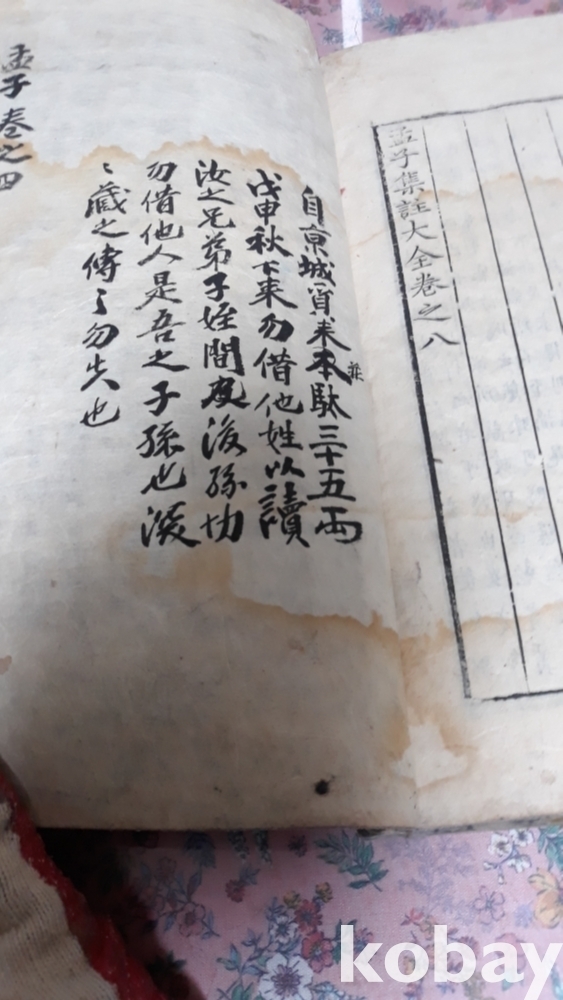 孟子集註大全卷之八
自京城貿来本並駄三十五兩
戊申秋下来勿借他姓以讀
汝之兄弟子姪間及後孫切
勿借他人是吾之子孫也深
〻藏之傳〻勿失也
孟子卷之四
kobay